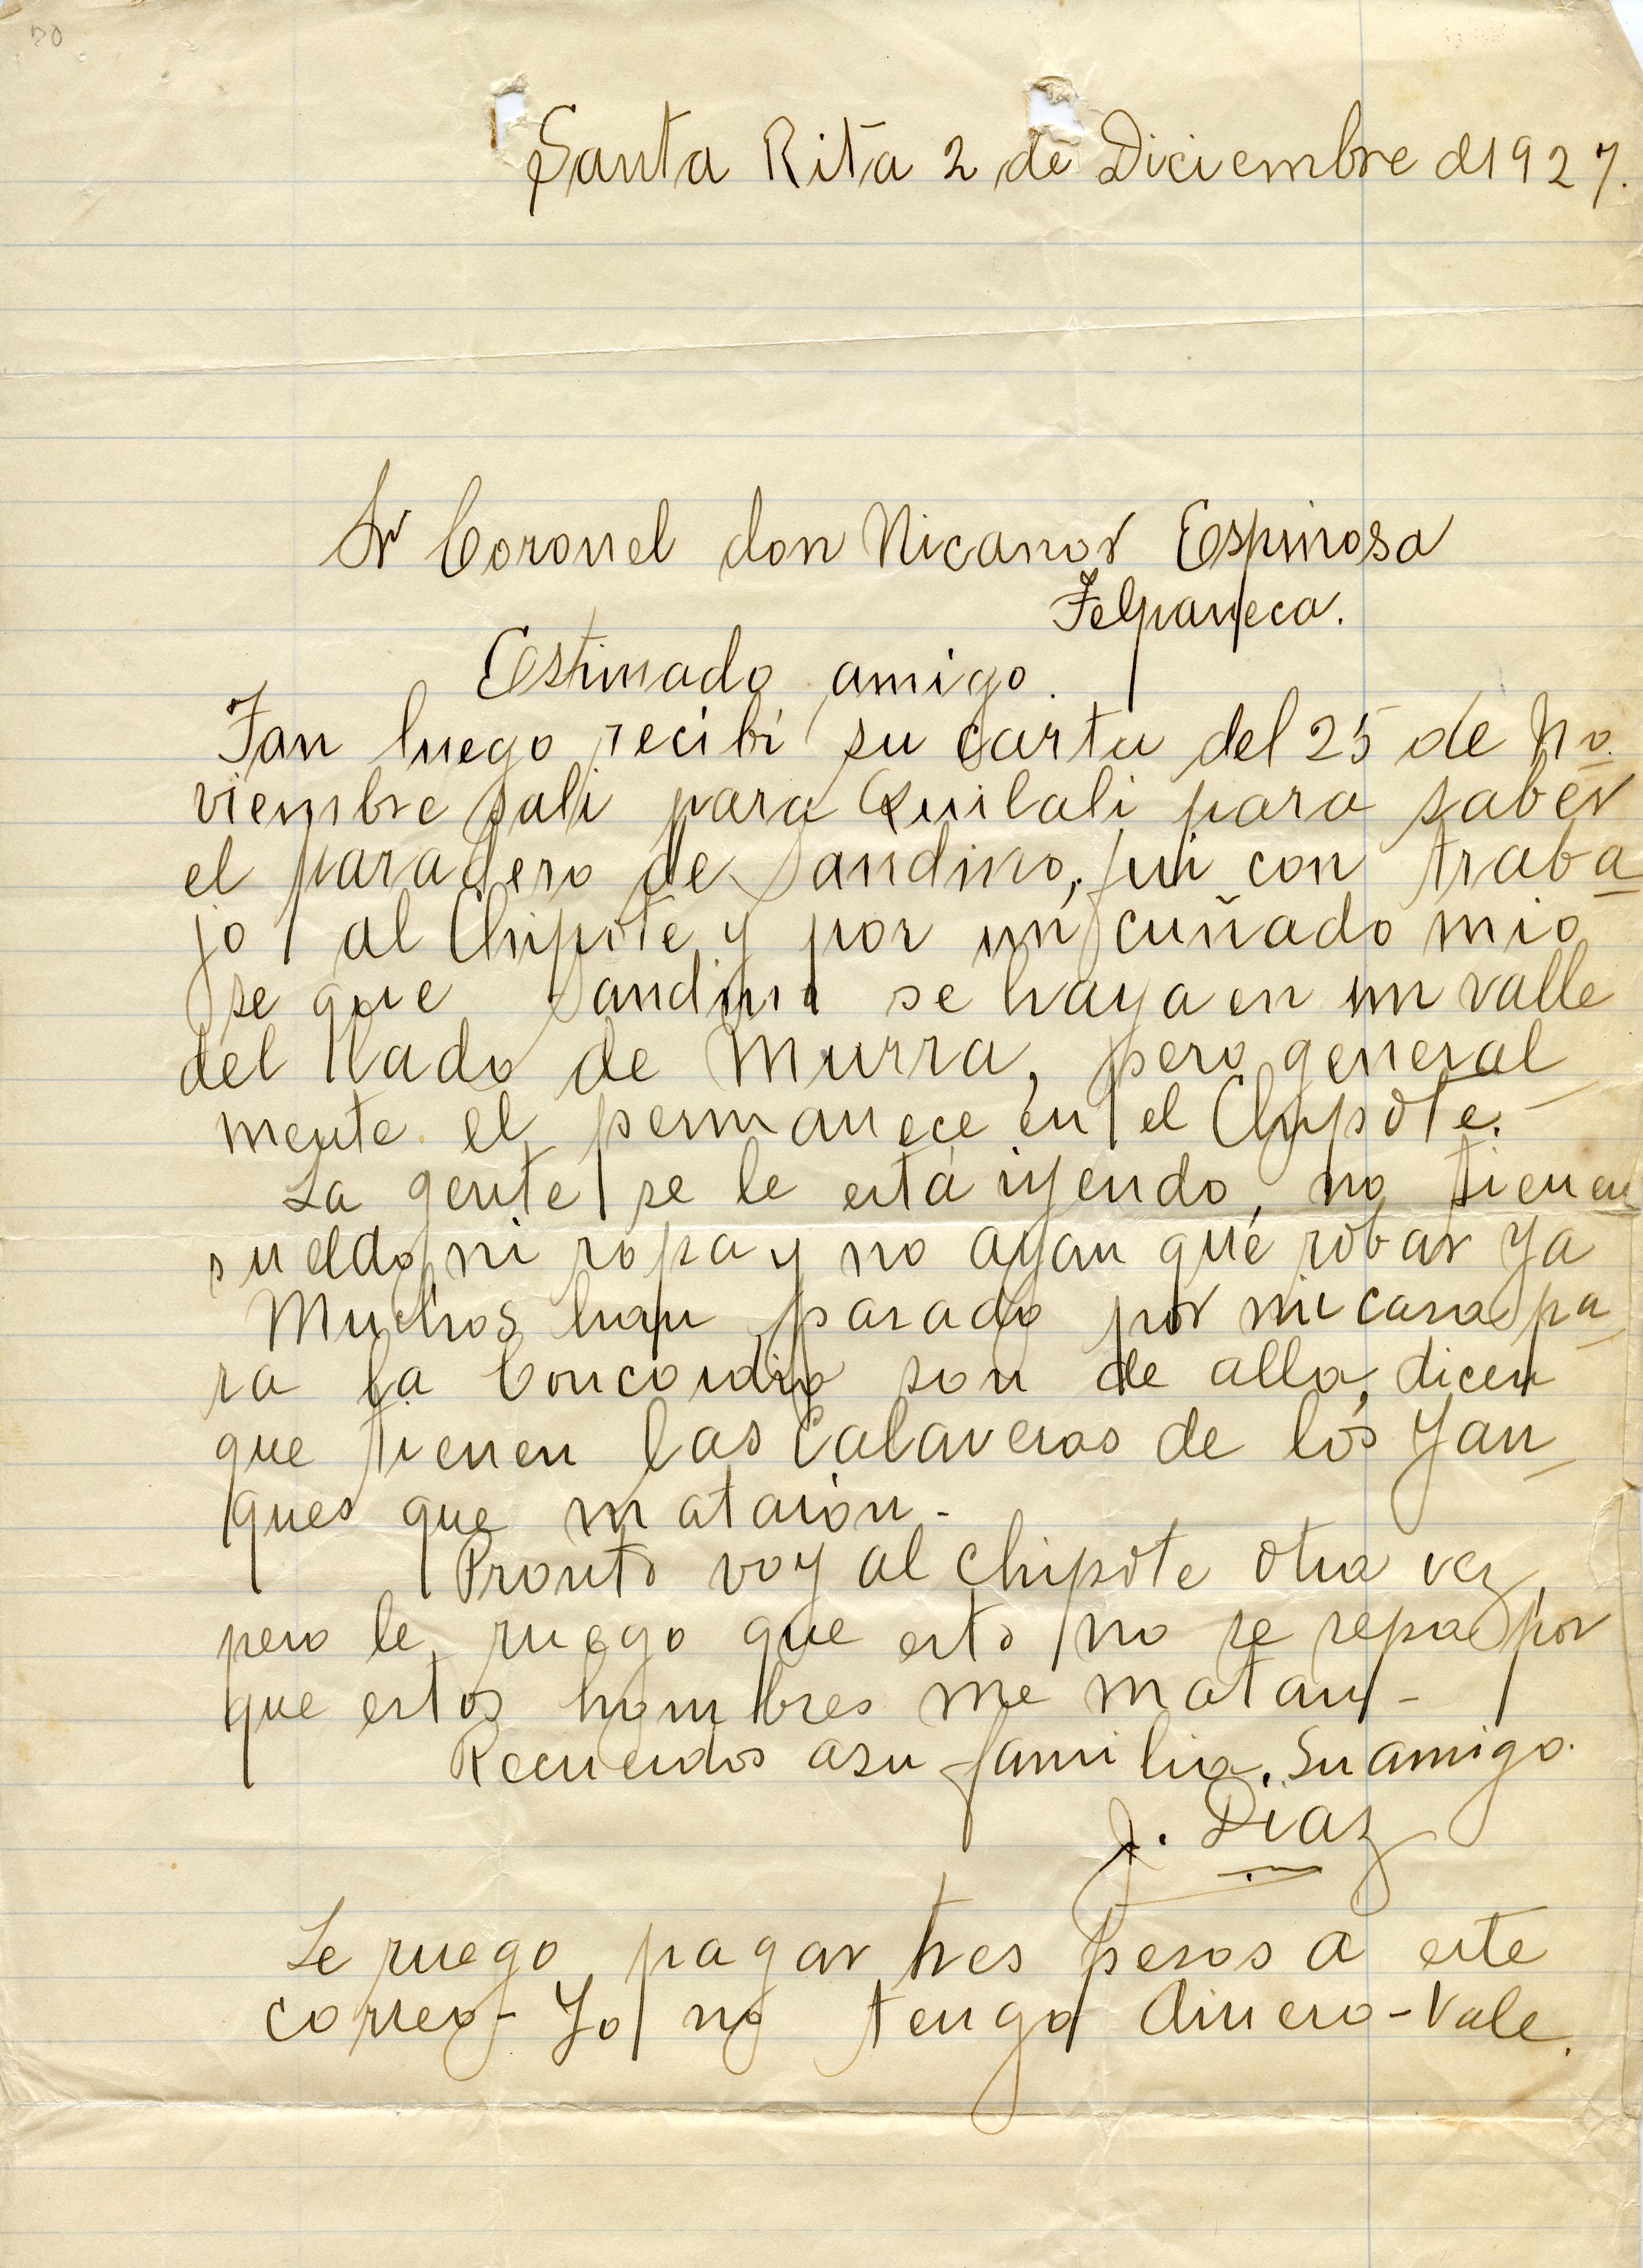 70
Santa Rita 2 de Diciembre d 1927.
Sr Coronel don Nicanor Espinosa
Telpaneca.
Estimado amigo.
Tan luego recibí su carta del 25 de No
viembre sali para Quilali para saber
el paradero de Sandino, fui con traba
jo al Chipote y por un cuñado mio
se que Sandino se haya en un valle
del lado de Murra, pero general
mente el permanece en el Chipote.
La gente se le está iyendo, no tienen
sueldo, ni ropa y no ayan qué robar ya
Muchos han pasado por mi casa pa
ra la Concordia son de alla, dicen
que tienen las Calaveras de los Yan
ques que mataron -
Pronto voy al Chipote otra vez,
pero le ruego que esto no se sepa por
que estos hombres me matan -
Recuerdos a su familia. Su amigo.
J. Diaz
Le ruego pagar tres pesos a este
correo - Yo no tengo dinero - Vale.